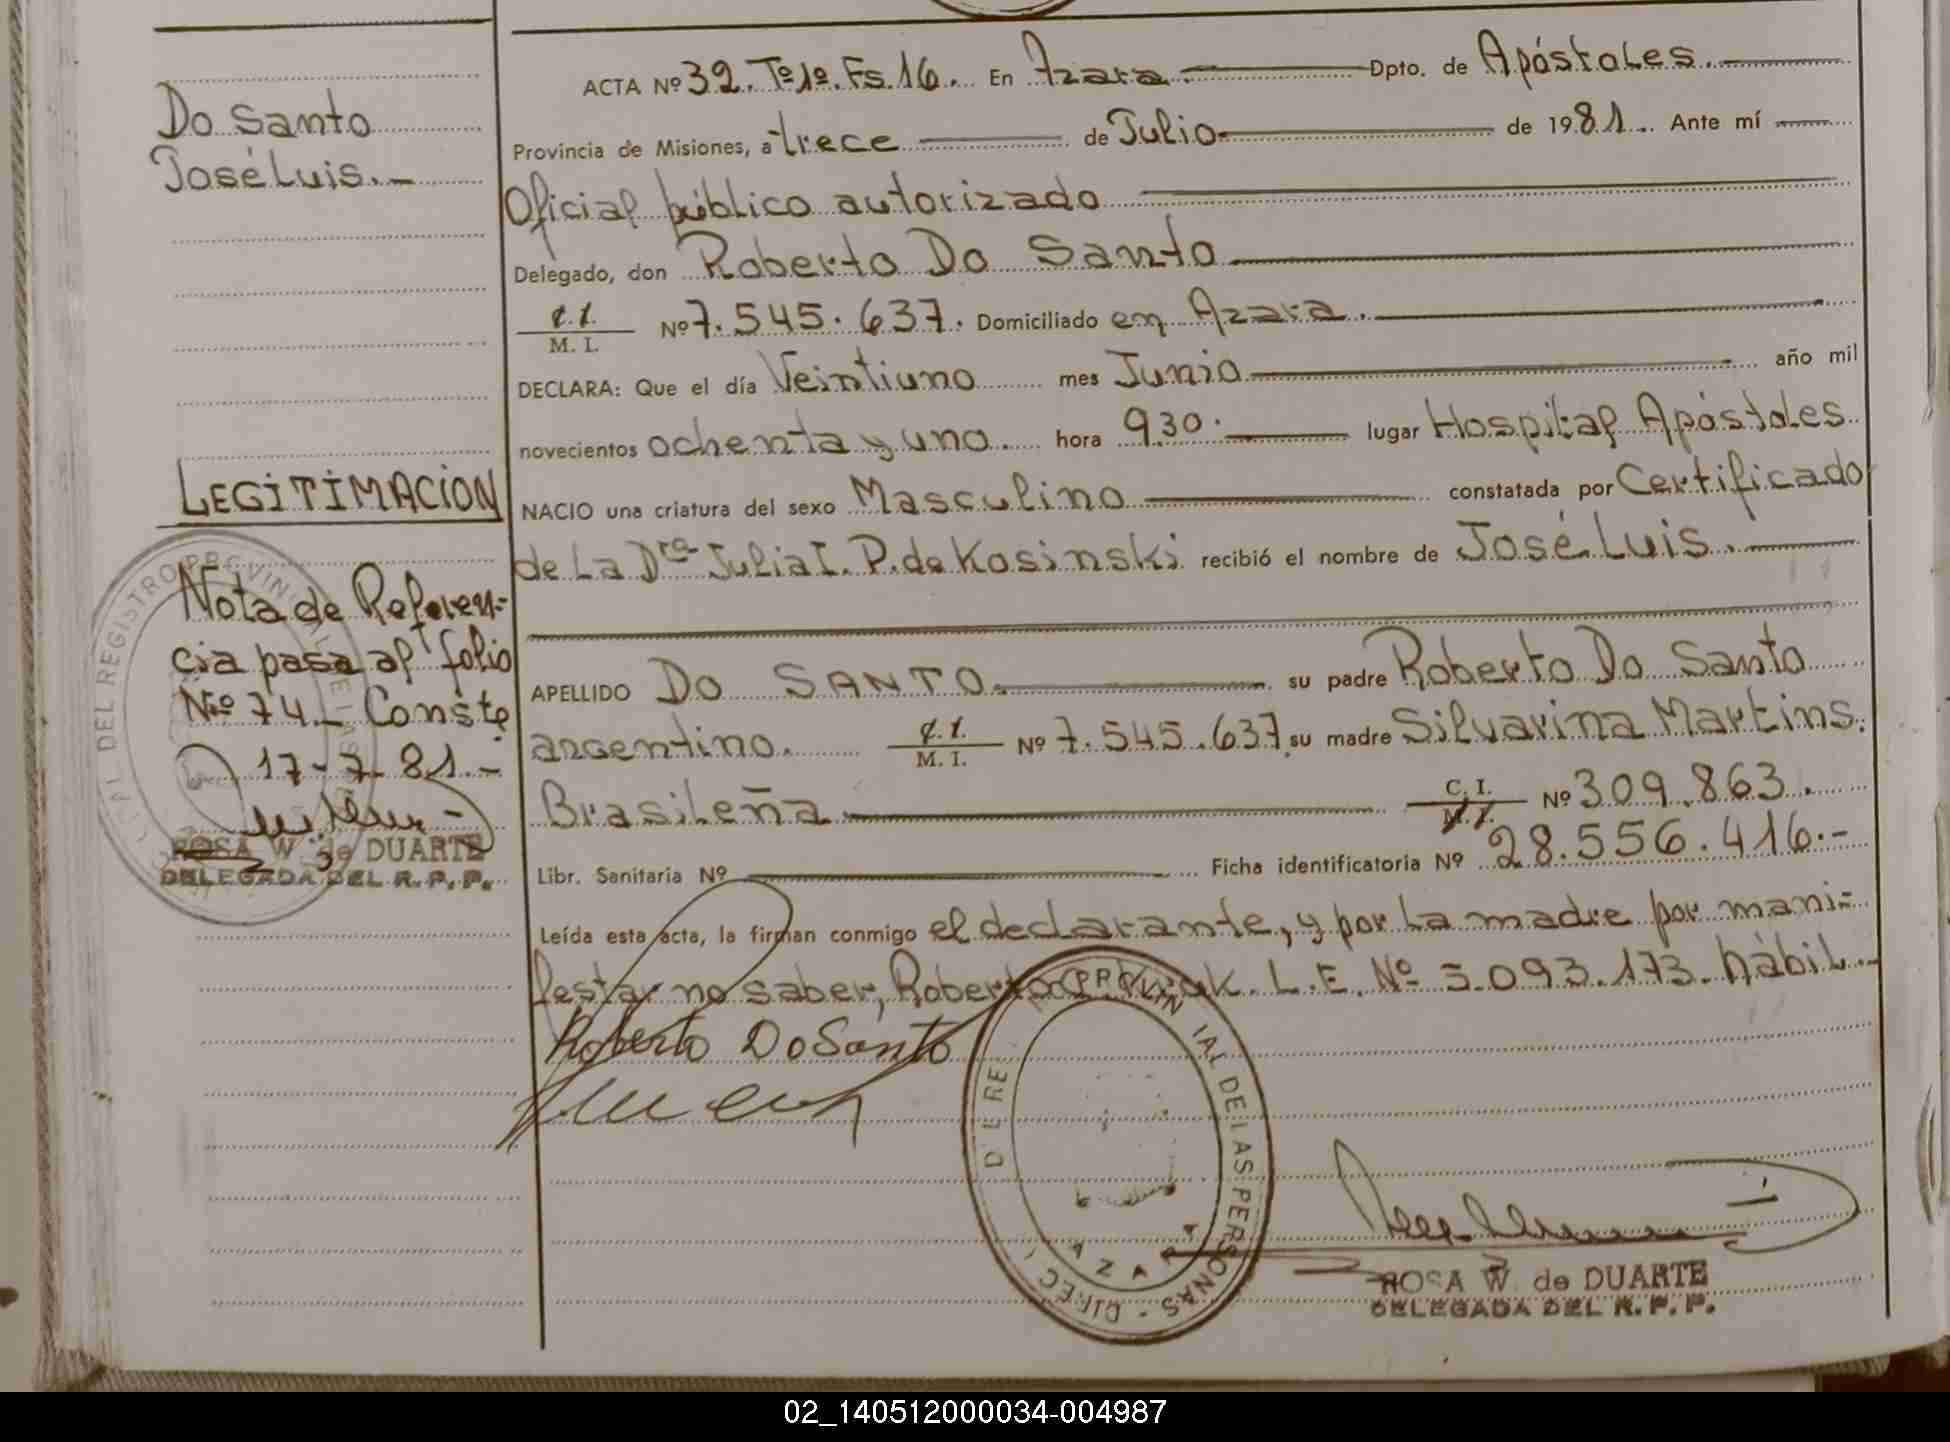 Do Santo
José Luis.-
LEGITIMACION
Nota de Referen-
cia pasa al folio
Nº 74.- Conste
17-7-81.-
ROSA W. de DUARTE
DELEGADA DEL R.P.P.
ACTA Nº 32. Tº 1º. Fs. 16. En Azara.- Dpto. de Apóstoles.-
Provincia de Misiones, a trece de Julio de 1981. Ante mí
Oficial público autorizado
Delegado, don Roberto Do Santo
C.I. M. I. Nº 7.545.637. Domiciliado en Azara.
DECLARA: Que el día Veintiuno mes Junio año mil
novecientos ochenta y uno. hora 9.30. lugar Hospital Apóstoles
NACIO una criatura del sexo Masculino constatada por Certificado
de La Dra Julia I. P. de Kosinski recibió el nombre de José Luis.
APELLIDO DO SANTO. su padre Roberto Do Santo
argentino. C.I. M. I. Nº 7.545.637 su madre Silvarina Martins.
Brasileña C. I. M. I. Nº 309.863.
Libr. Sanitaria Nº Ficha identificatoria Nº 28.556.416.-
Leída esta acta, la firman conmigo el declarante, y por La madre por mani-
festar no saber, Roberto L.E. Nº 5.093.173. hábil.
Roberto Do Santo
PROVINCIAL DE LAS PERSONAS
AZARA
ROSA W. de DUARTE
DELEGADA DEL R. P. P.
02_140512000034-004987